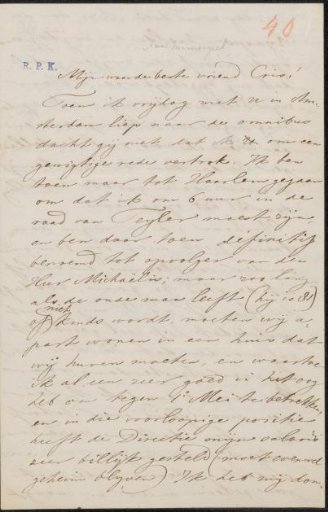 40
R. P. K.
Mijn waarde beste vriend Cris!
Toen ik vrijdag met U in Am-
sterdam liep naar de omnibus
dacht gij niet dat ik om een
gewigtige rede vertrok. Ik ben
toen maar tot Haarlem gegaan
om dat ik om 6 uur in de
raad van Teyler moest zijn,
en ben daar toen definitif
benoemd tot opvolger van den
Heer Michaëlis; maar zoo lang
als de oude man leeft (hij is 81)
of niet kinds wordt, moeten wij a-
part wonen in een huis dat
wij huren moeten, en waartoe
ik al een zeer goed in het oog
heb om tegen 1 Mei te betrekken,
en in die voorloopige positie
heeft de Directie mijn salaris
zeer billijk gesteld (moet evenwel
geheim blijven) Ik heb mij dan